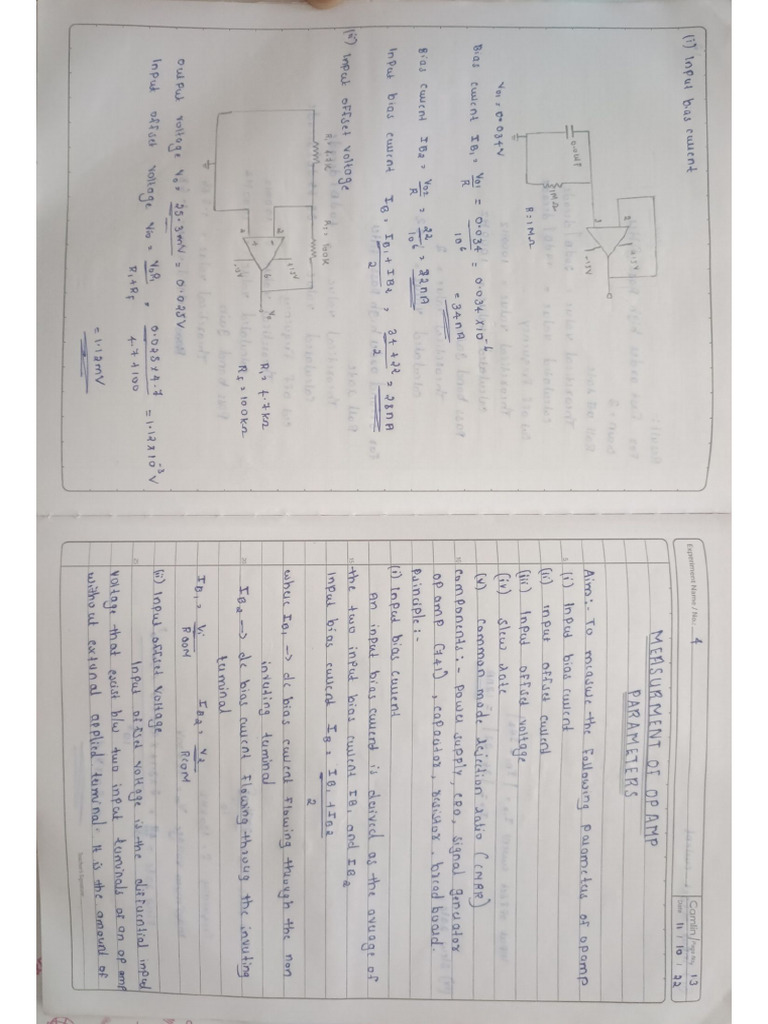 (i) Input bias current
0.01MF
1MΩ
R=1MΩ
2
3
+15V
-15V
V01 = 0.034V
Bias current IB1 = V01/R = 0.034/10^6 = 0.034x10^-6
= 34nA
Bias current IB2 = V02/R = 22/10^6 = 22nA
Input bias current IB = IB1+IB2/2 = 34+22/2 = 28nA
(ii) Input offset voltage
Rf = 100K
2
3
6
+15V
-15V
V0
R1 = 4.7KΩ
Rf = 100KΩ
output voltage V0 = 25.3mV = 0.025V
Input offset voltage Vi0 = V0R1/R1+Rf = 0.025x4.7/4.7+100 = 1.12x10^-3 V
= 1.12mV
Experiment Name / No.: 4
Camlin Page No 13
Date 11 / 10 / 22
MEASURMENT OF OPAMP
PARAMETERS
Aim:- To measure the following parameters of opamp
(i) Input bias current
(ii) input offset current
(iii) Input offset voltage
(iv) slew rate
(v) common mode rejection ratio (CMRR)
components:- power supply, CRO, signal generator
op amp (741), capacitor, resistor, bread board.
principle:-
(i) Input bias current
An input bias current is derived as the average of
the two input bias current IB1 and IB2
Input bias current IB = IB1 + IB2/2
where IB1 -> dc bias current flowing through the non
inverting terminal
IB2 -> dc bias current flowing throug the inverting
terminal
IB1 = V1/ROOM IB2 = V2/ROOM
(ii) Input offset voltage
Input offset voltage is the differential input
voltage that exist b/w two input terminals of an op amp
without external applied terminal. It is the amount of